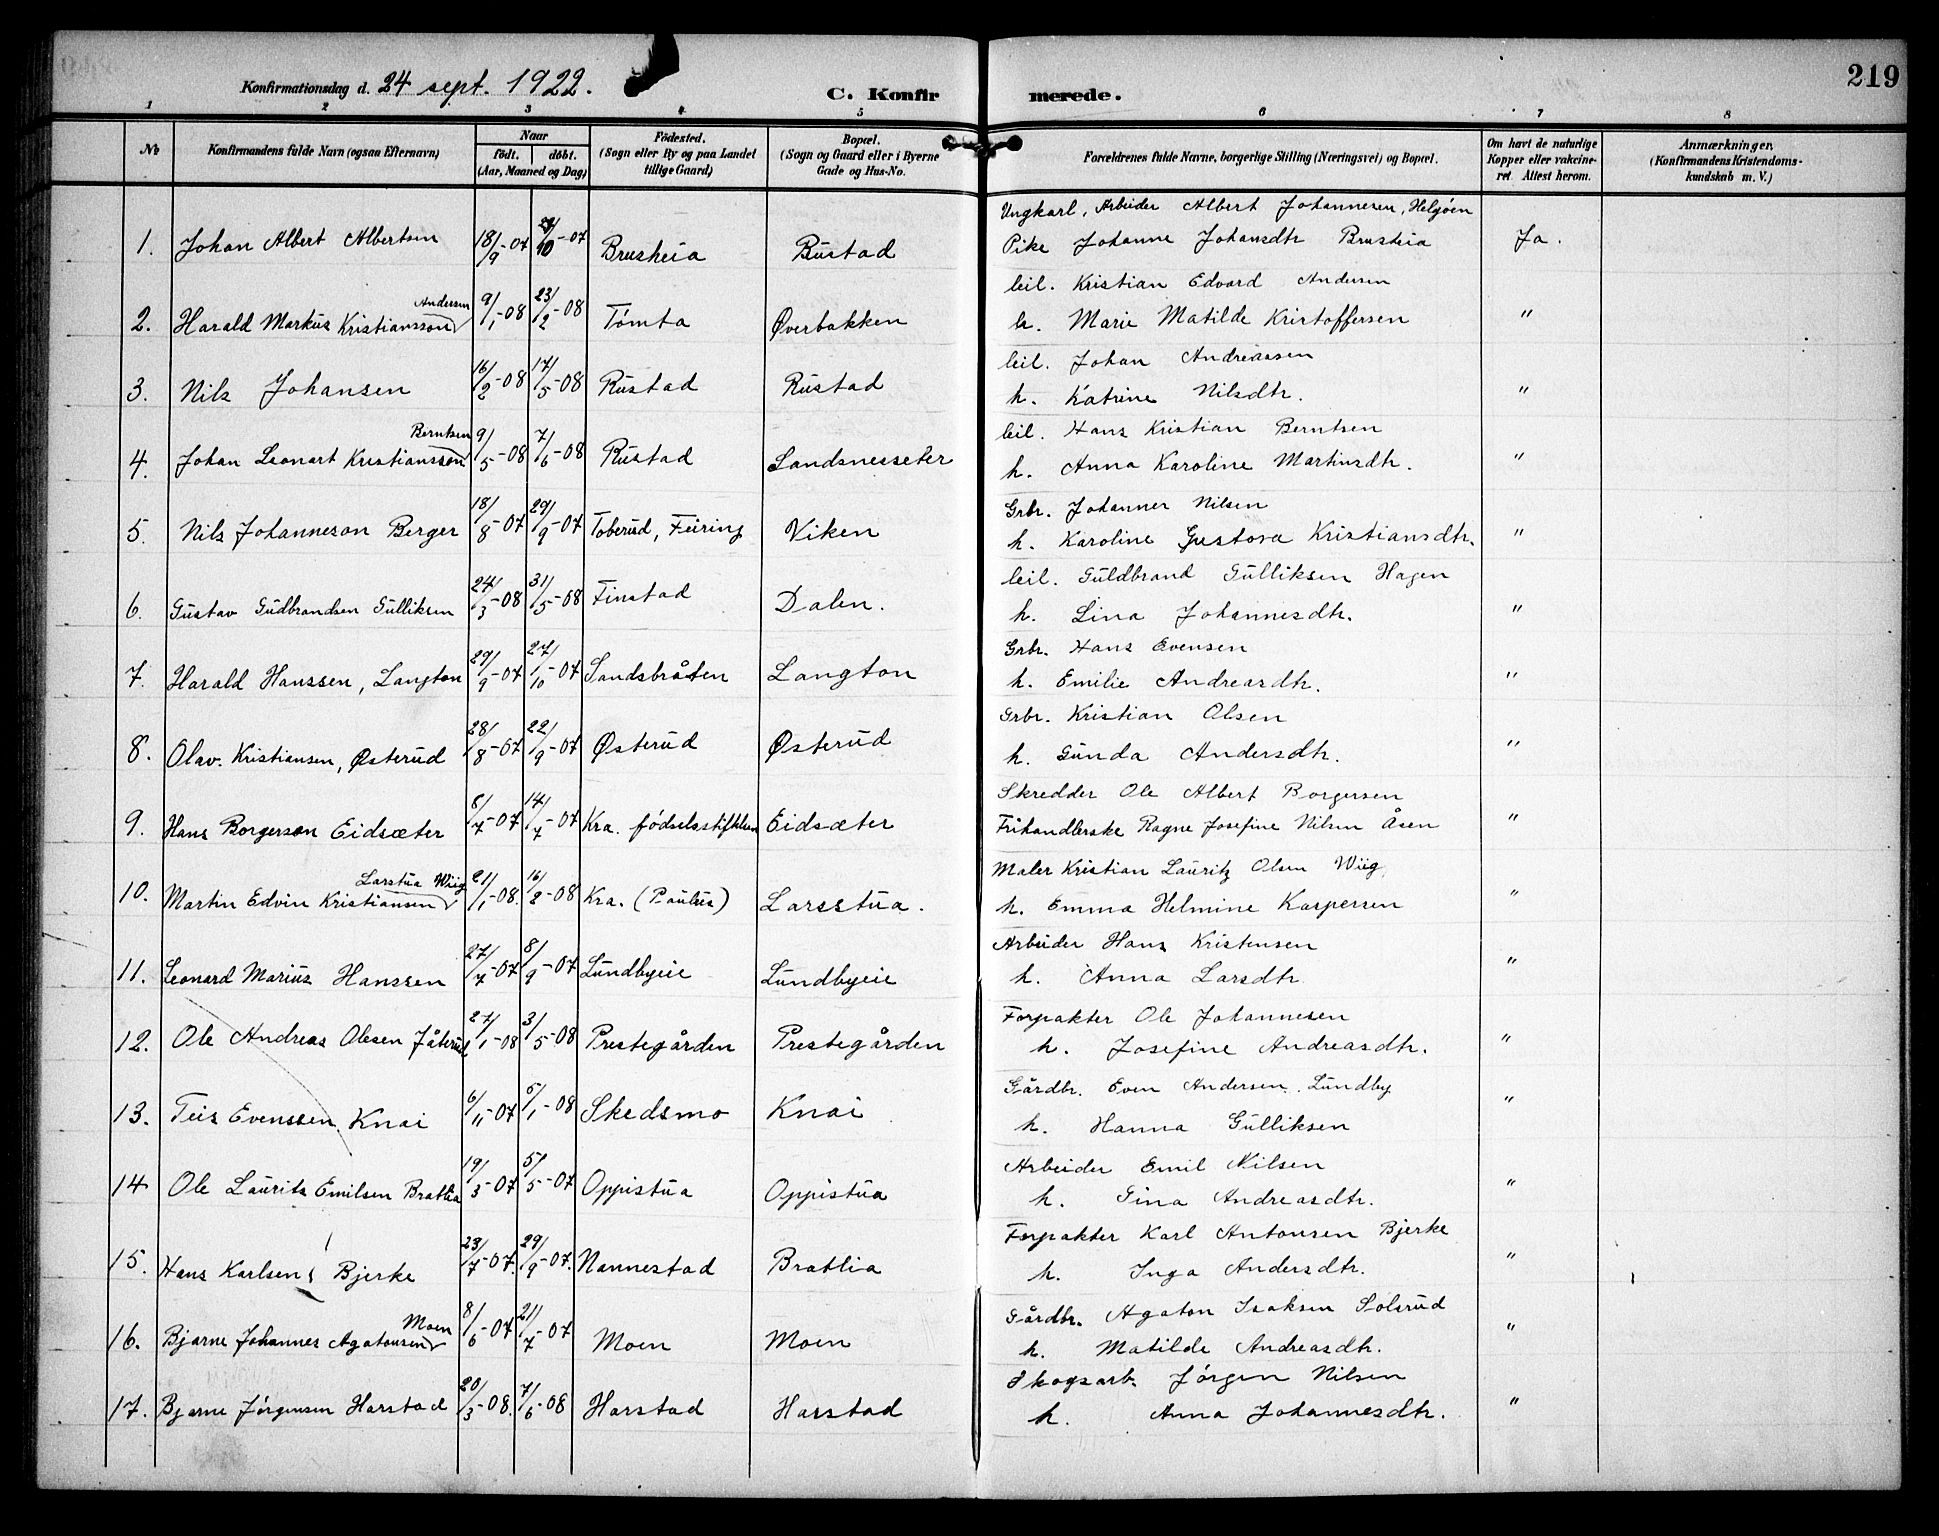 219
Konfirmationsdag d. 24 sept. 1922. C. Konfirmerede.
1 2 3 4 5 6 7 8
No Konfirmandens fulde Navn (ogsaa Efternavn) Naar født. døbt. (Aar, Maaned og Dag) Fødested. (Sogn eller By og paa Landet tillige Gaard) Bopæl. (Sogn og Gaard eller i Byerne Gade og Hus-No. Forældrenes fulde Navne, borgerlige Stilling (Næringsvei) og Bopæl. Om havt de naturlige Kopper eller vakcineret. Attest herom. Anmærkninger. (Konfirmandens Kristendomskundskab m. V.)
Ungkarl, Arbeider Albert Johannesen, Helgøen
1. Johan Albert Albertsen 18/9-07 /10-07 Brusheia Bustad Pike Johanne Johansdtr Brusheia Ja.
leil. Kristian Edvard Andersen
2. Harald Markus Kristianssøn Andersen 9/1-08 23/2-08 Tømta Øverbakken h. Marie Matilde Kristoffersen "
leil. Johan Andreassen
3. Nils Johansen 16/2-08 17/5-08 Rustad Rustad h. Katrine Nilsdtr. "
leil. Hans Kristian Berntsen
4. Johan Leonart Kristianssen Berntsen 9/5-08 7/6-08 Rustad Sandsnesseter h. Anna Karoline Martinsdtr. "
Grbr. Johannes Nilsen
5. Nils Johanneson Berger 18/8-07 29/9-07 Toberud, Feiring Viken h. Karoline Gustava Kristiansdtr. "
leil. Guldbrand Gulliksen Hagen
6. Gustav Gudbrandsen Gulliksen 24/3-08 31/5-08 Finstad Dalen. h. Lina Johannesdtr. "
Grbr. Hans Evensen
7. Harald Hanssen, Langton 29/9-07 27/10-07 Sandsbråten Langton h. Emilie Andreasdtr. "
Grbr. Kristian Olsen
8. Olav. Kristiansen, Østerud 28/8-07 22/9-07 Østerud Østerud h. Gunda Andersdtr. "
Skredder Ole Albert Borgersen
9. Hans Borgerson Eidsæter 8/7-07 14/7-07 Kra. fødselsstiftelsen Eidsæter Frihandlerske Ragne Josefine Nilsen Åsen "
Maler Kristian Lauritz Olsen Wiig
10. Martin Edvin Kristiansen Larstua Wiig 21/1-08. 16/2-08 Kra. (Paulus) Larsstua. h. Emma Helmine Kaspersen "
Arbeider Hans Kristensen
11. Leonard Marius Hanssen 27/7-07 8/9-07 Lundbyeie Lundbyeie h. Anna Larsdtr "
Forpakter Ole Johannesen
12. Ole Andreas Olesen Jåterud 27/1-08 3/5-08 Prestegården Prestegården h. Josefine Andreasdtr. "
Gårdbr. Even Andersen. Lundby
13. Teis Evenssen Knai 6/11-07 5/1-08 Skedsmo Knai h. Hanna Gulliksen "
Arbeider Emil Nilsen
14 Ole Laurits Emilsen Bratlia 19/3-07 5/5-07 Oppistua Oppistua h. Gina Andreasdtr. "
Forpakter Karl Antonsen Bjerke
15. Hans Karlsen Bjerke 23/7-07. 29/9-07. Nannestad Bratlia h. Inga Andersdtr. "
Gårdbr. Agaton Isaksen Solsrud
16. Bjarne Johannes Agatonsen Moen 8/6-07 21/7-07 Moen Moen h. Matilde Andreasdtr. "
Skogsarb. Jørgen Nilsen
17. Bjarne Jørgensen Harstad 20/3-08. 7/6-08 Harstad Harstad h. Anna Johannesdtr. "